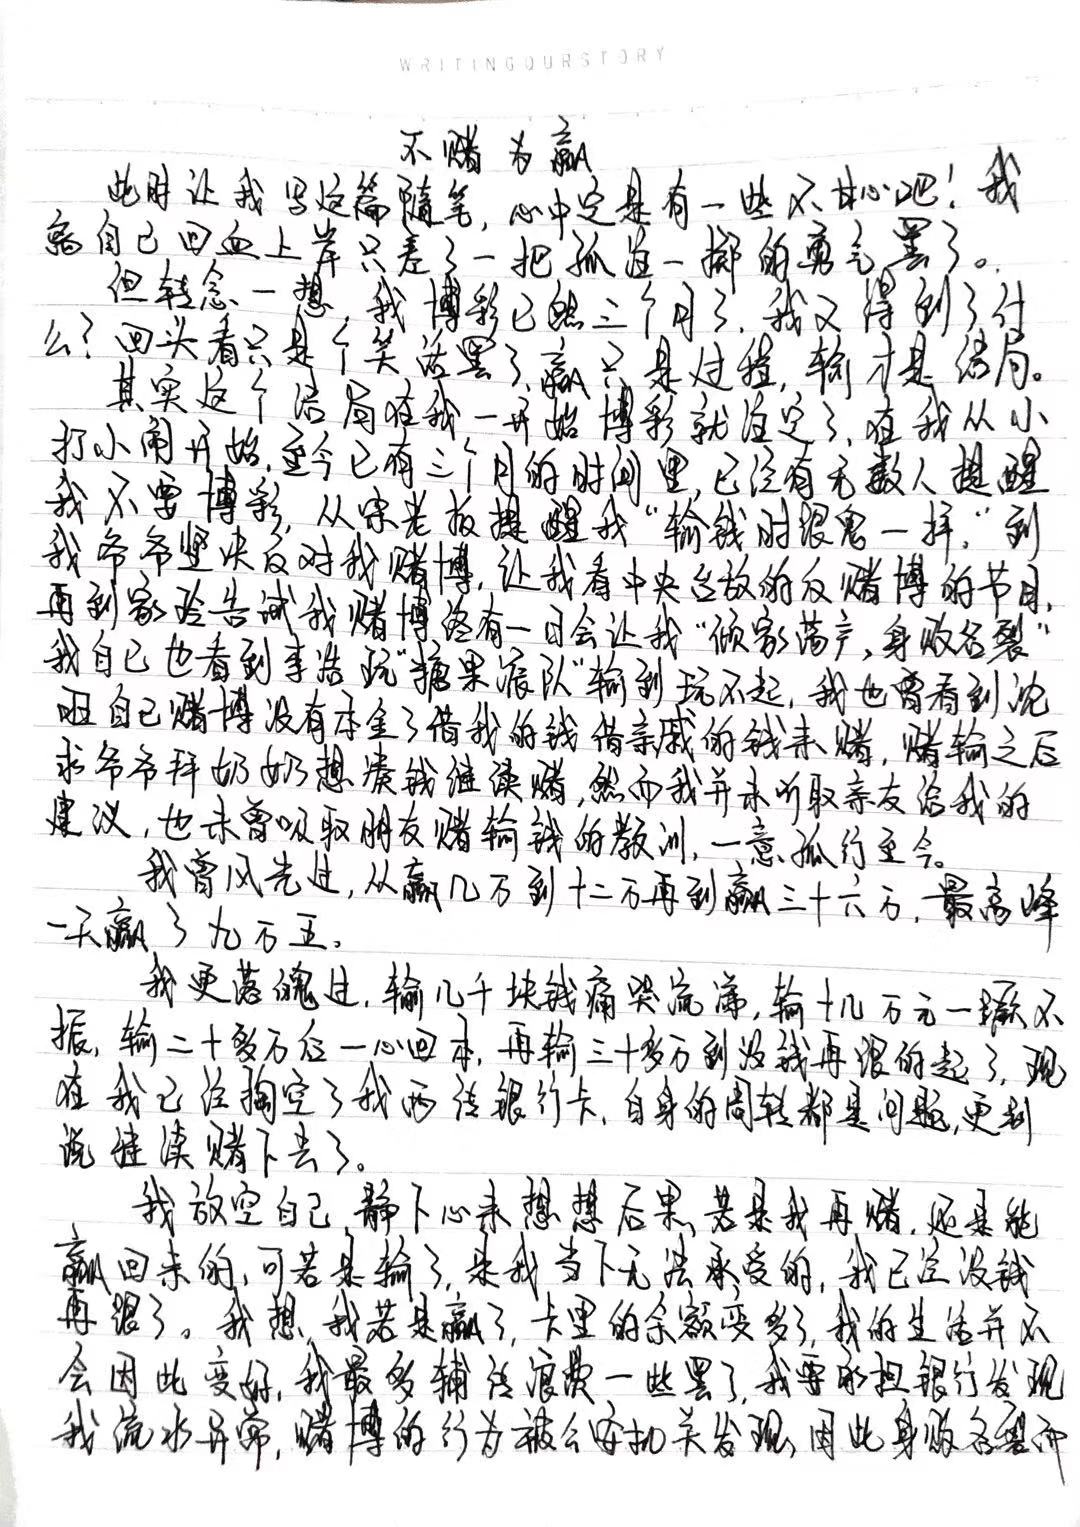 WRITINGOURSTORY
不赌为赢
此时让我写这篇随笔，心中定是有一些不甘心吧！我
离自己回血上岸只差了一把孤注一掷的勇气罢了。
但转念一想，我博彩已然三个月了，我又得到了什
么？回头看只是个笑话罢了，赢只是过程，输才是结局。
其实这个结局在我一开始博彩就注定了，在我从小
打小闹开始，至今已有三个月的时间里，已经有无数人提醒
我不要博彩，从宋老板提醒我“输钱时跟鬼一样，”到
我爷爷坚决反对我赌博，让我看中央台放的反赌博的节目，
再到家玲告诫我赌博终有一日会让我“倾家荡产，身败名裂”
我自己也看到李浩玩“糖果派队”输到玩不起，我也曾看到沈
旺自己赌博没有本金了借我的钱借亲戚的钱来赌，赌输之后
求爷爷拜奶奶想凑钱继续赌，然而我并未听取亲友给我的
建议，也未曾吸取朋友赌输钱的教训，一意孤行至今。
我曾风光过，从赢几万到十二万再到赢三十六万，最高峰
一天赢了九万五。
我更落魄过，输几千块钱痛哭流涕，输十几万元一蹶不
振，输二十多万后一心回本，再输三十多万到没钱再跟的起了，现
在我已经掏空了我两张银行卡，自身的周转都是问题，更别
说继续赌下去了。
我放空自己，静下心来想想后果，若是我再赌，还是能
赢回来的，可若是输了，是我当下无法承受的，我已经没钱
再跟了。我想，我若是赢了，卡里的余额变多了，我的生活并不
会因此变好，我最多铺张浪费一些罢了，我要承担银行发现
我流水异常，赌博的行为被公安机关发现，因此身败名裂而